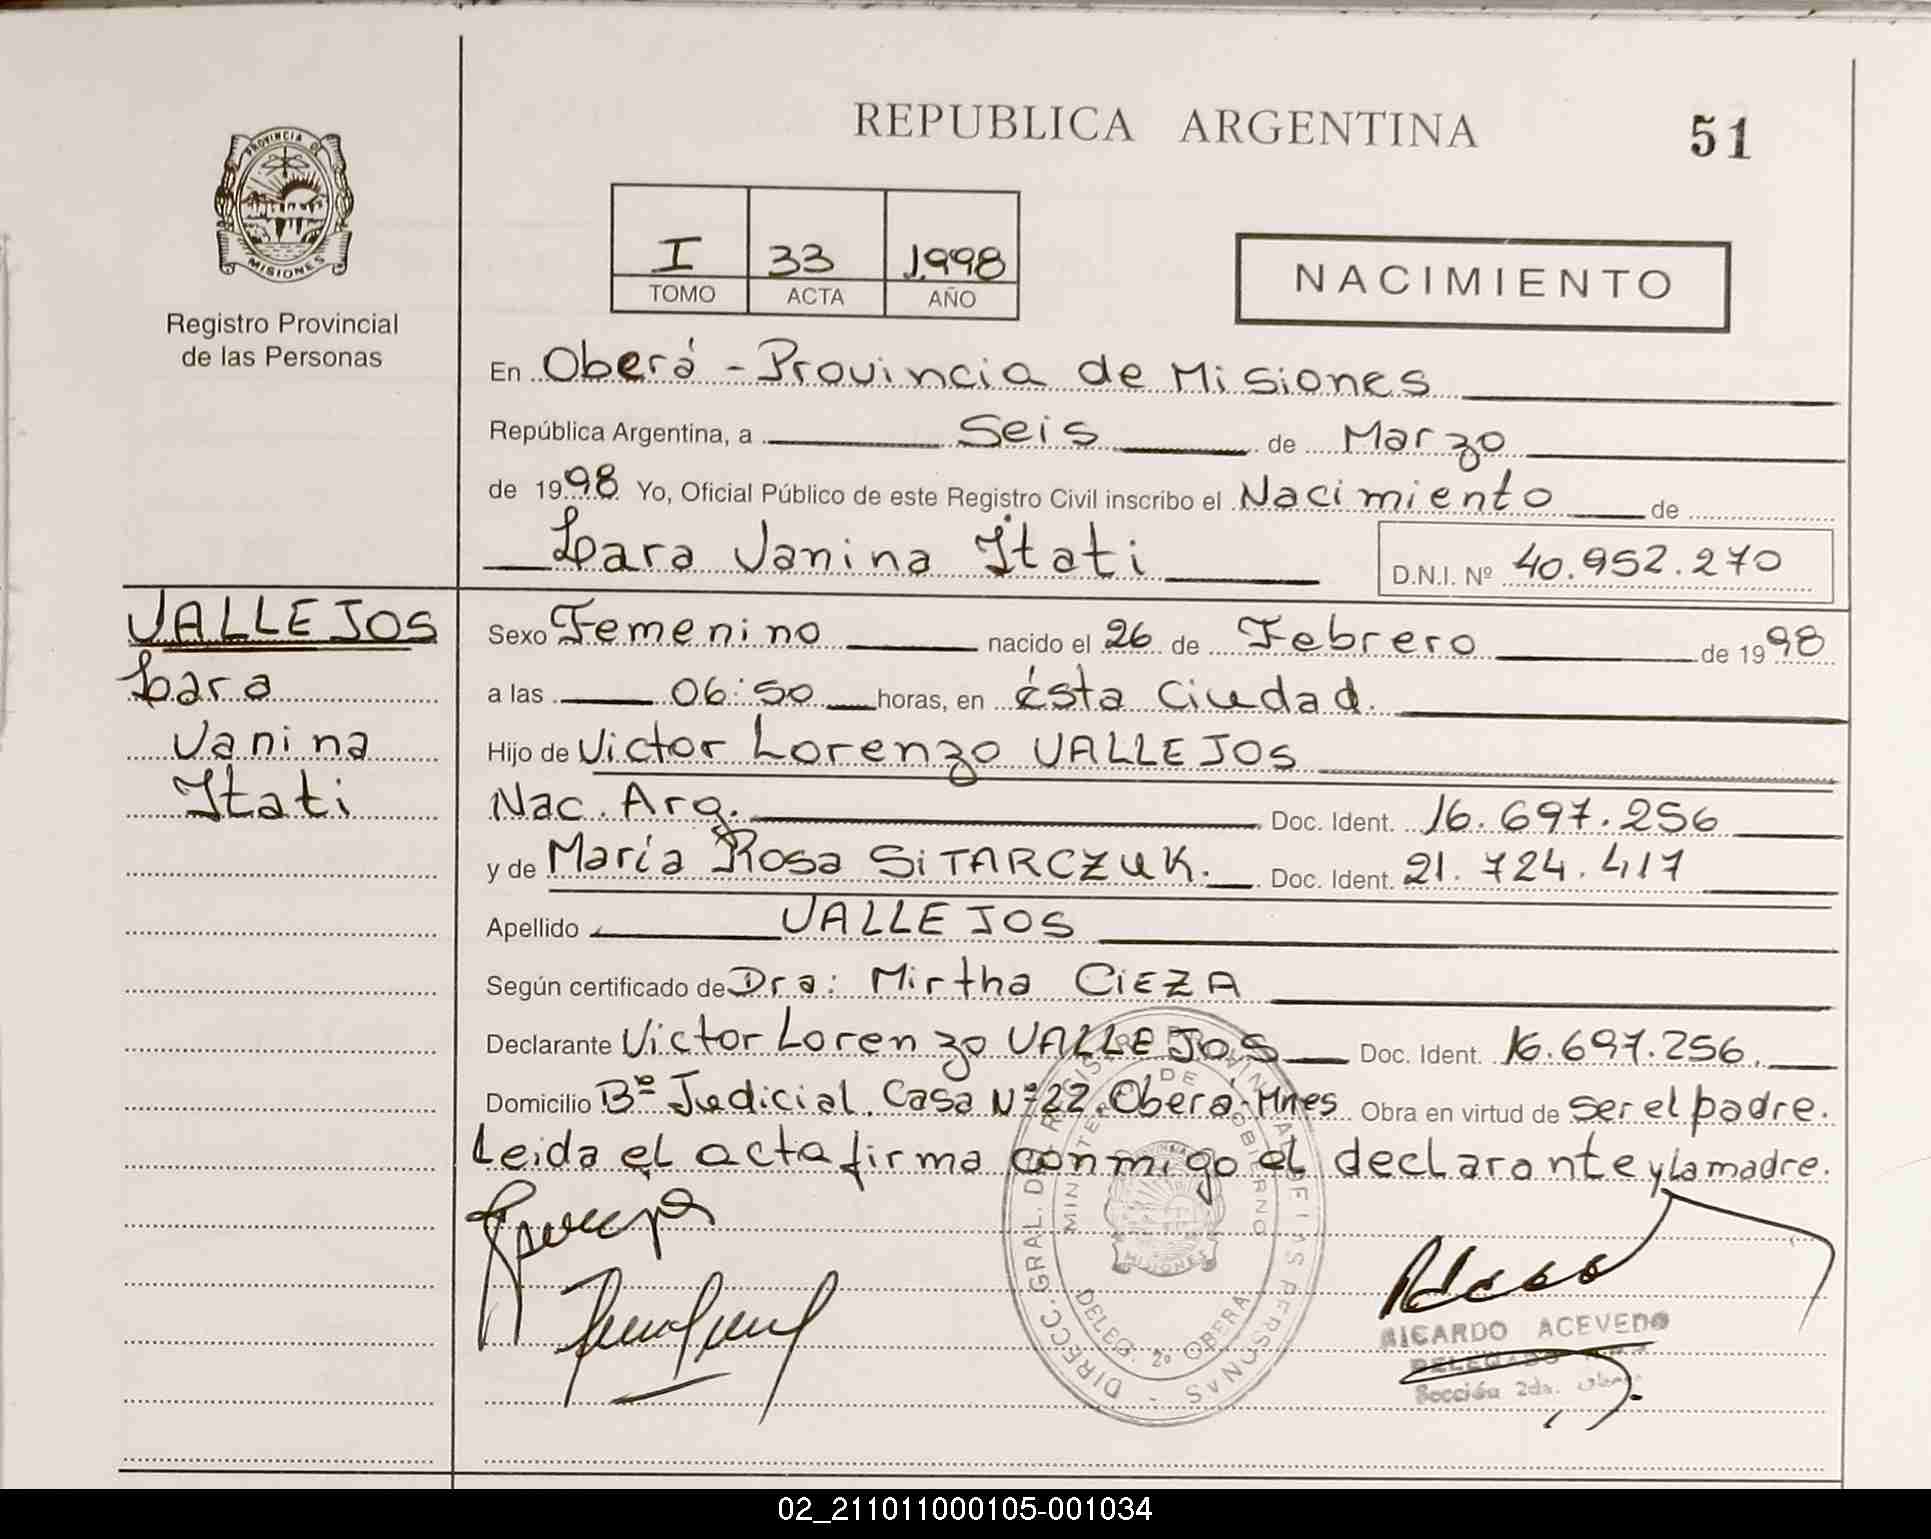 REPUBLICA ARGENTINA
51
PROVINCIA DE
MISIONES
Registro Provincial
de las Personas
I 33 1.998
TOMO ACTA AÑO
NACIMIENTO
En Oberá - Provincia de Misiones
República Argentina, a Seis de Marzo
de 1998 Yo, Oficial Público de este Registro Civil inscribo el Nacimiento de
Lara Vanina Itati D.N.I. Nº 40.952.270
VALLEJOS
Lara
Vanina
Itati
Sexo Femenino nacido el 26 de Febrero de 1998
a las 06:50 horas, en ésta Ciudad.
Hijo de Victor Lorenzo VALLEJOS
Nac. Arg. Doc. Ident. 16.697.256
y de María Rosa SITARCZUK. Doc. Ident. 21.724.417
Apellido VALLEJOS
Según certificado de Dra: Mirtha CIEZA
Declarante Victor Lorenzo VALLEJOS Doc. Ident. 16.697.256.
Domicilio Bº Judicial. Casa Nº 22. Oberá-Mnes Obra en virtud de ser el padre.
Leida el acta firma conmigo el declarante y la madre.
DIRECC. GRAL. DE REGISTRO PROVINCIAL DE LAS PERSONAS
MINISTERIO DE GOBIERNO
MISIONES
DELEG. 2º OBERA
RICARDO ACEVEDO
DELEGADO
Sección 2da.
02_211011000105-001034